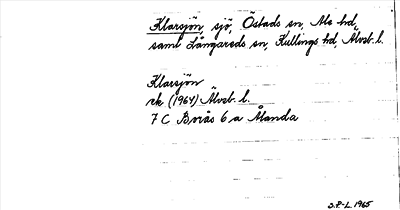 Klarsjön, sjö, Östads sn, Ale hd,
saml Långareds sn, Kullings hd Älvsb. l.
Klarsjön
rk (1964) Älvsb. l.
7 C Borås 6 a Ålanda
S.F-L. 1965